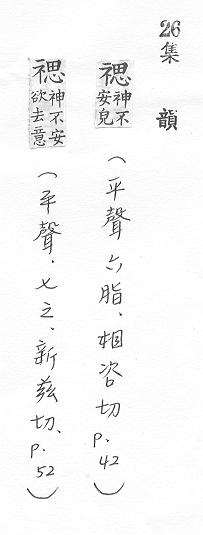 26集韻
禗神不安皃(平聲六脂、相咨切p.42)
禗神不安欲去意(平聲、七之、新茲切、p.52)